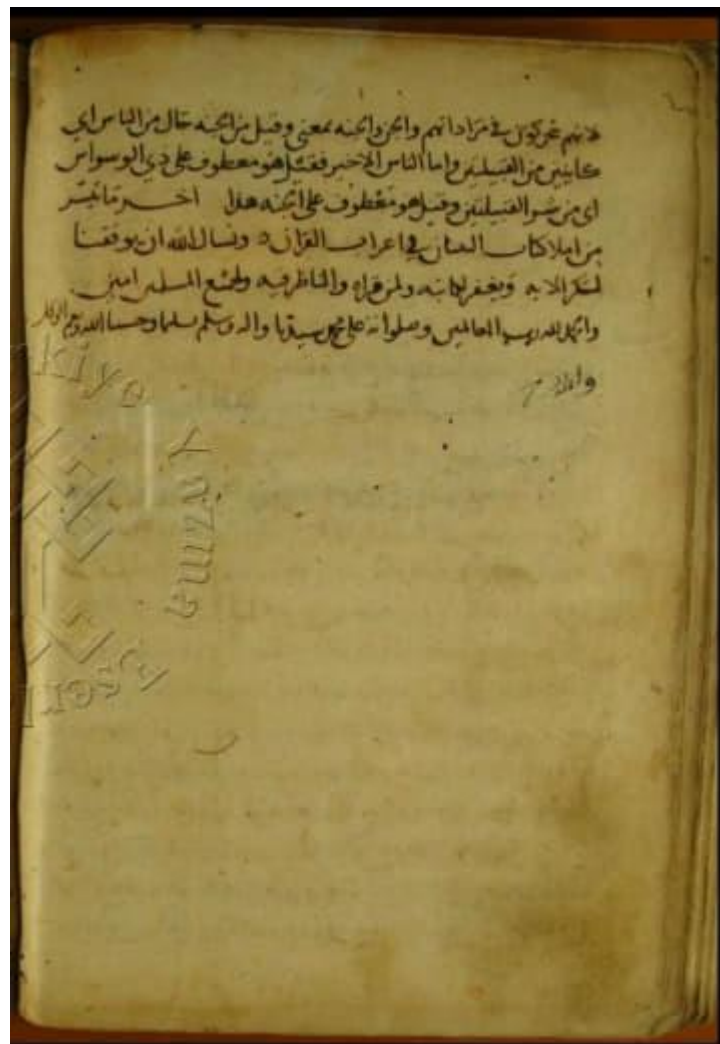 لانهم يتحركون في مراداتهم والجن والجنه بمعنى وقيل من الجنه حال من الناس اي
كاينين من القبيلين واما الناس الاخير فقيل هو معطوف على ذي الوسواس
اى من شر القبيلين وقيل هو معطوف على الجنه هذا اخر ما تيسر
من املا كتاب التبيان في اعراب القران ونسال الله ان يوفقنا
لشكر الايه ويغفر لكاتبه ولمن قراه والناظر فيه ولجميع المسلمين امين
والحمد لله رب العالمين وصلواته على محمد سيدنا واله وسلم تسليما وحسبنا الله ونعم الوكيل
Türkiye
Yazma
Eserl